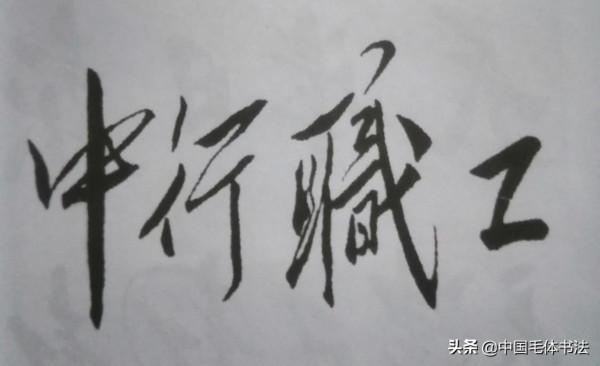 中行職工
头条 @中国毛体书法